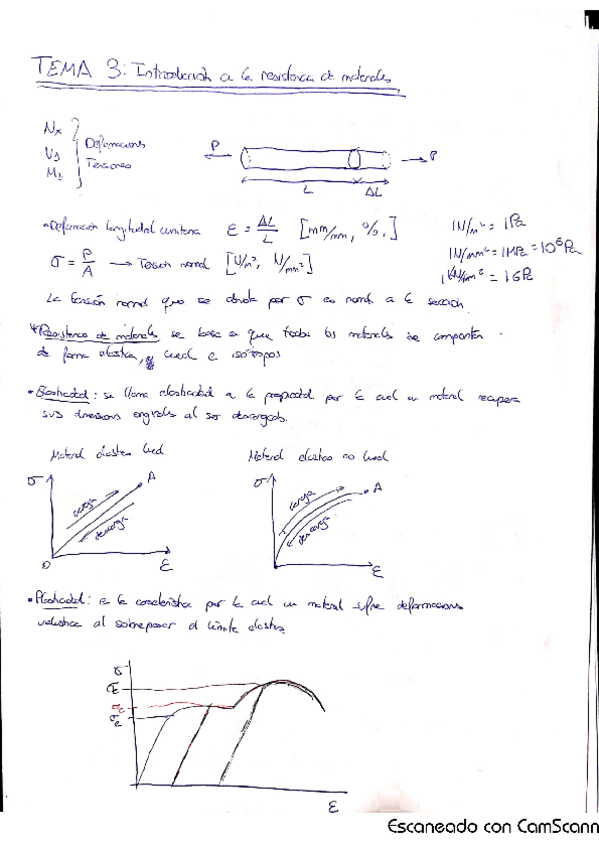 TEMA 3: Introducción a la resistencia de materiales
Nx
Vy
Mz
Deformaciones
Tensiones
P
P
L
ΔL
• Deformación longitudinal unitaria ε = ΔL/L [mm/mm, %.]
1N/m² = 1Pa
σ = P/A → Tensión normal [N/m², N/mm²]
1N/mm² = 1MPa = 10⁶Pa
1KN/mm² = 1GPa
La tensión normal que se denota por σ es normal a la sección.
* Resistencia de materiales se basa en que todos los materiales se comportan
de forma elástica, y lineal e isótropos
• Elasticidad: se llama elasticidad a la propiedad por la cual un material recupera
sus dimensiones originales al ser descargado.
Material elástico lineal
Material elástico no lineal
σ
carga
descarga
A
O
ε
σ
carga
descarga
A
ε
• Plasticidad: es la característica por la cual un material sufre deformaciones
al sobrepasar el límite elástico
σ
ε
Escaneado con CamScann